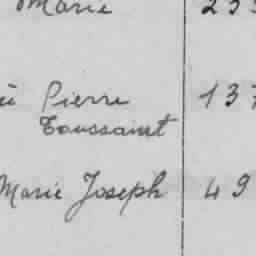 Marie 233
Pierre 137
Toussaint
Marie Joseph 49